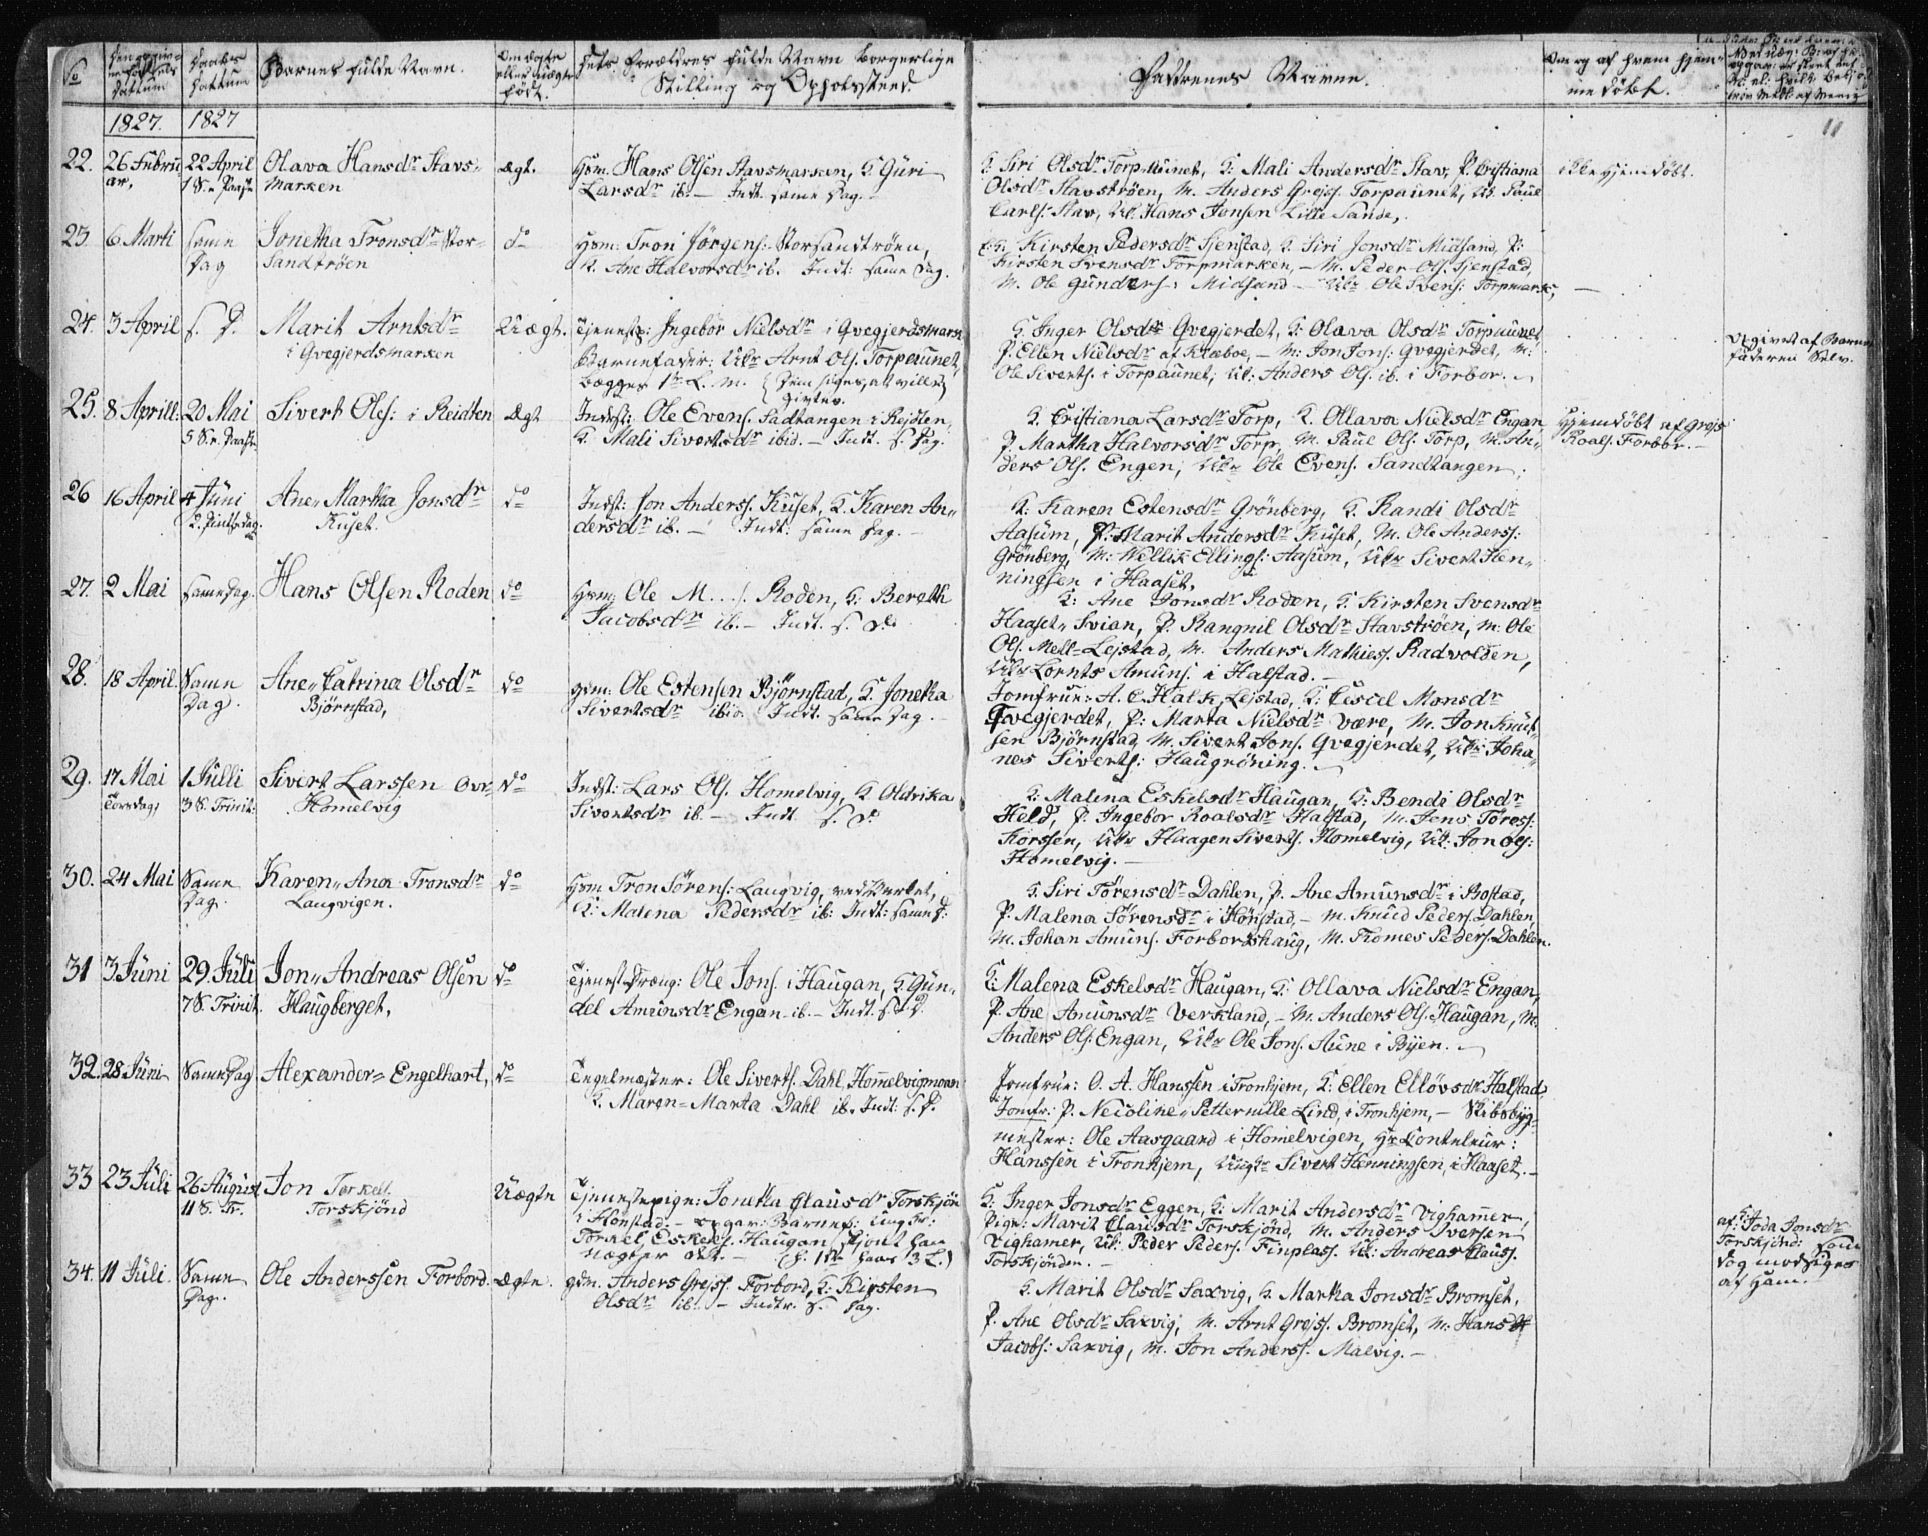 No
Barnets fulde Navn.
Skilling og Opholssteed.
Faddrenes Navne.
11
1827. 1827
22. 26 Februar, 22 April 1 S. e. Paaske Olava Hansdr Stavsmarken Ægt. Hsm. Hans Olsen Stavsmarken, K Guri
Larsdr ib. – Indt. same Dag. –
K. Siri Olsdr Torpaunet, K. Mali Andersdr Stav, P. Cristiana ikke hjemdøbt.
Olsdr Stavstrøen, M. Anders Grejs. Torpaunet, Uk Paul
Carls: Stav, Uk. Hans Jonsen Lille Sande,
23. 6 Marti same Dag Jonetha Tronsdr Storsandtrøen do Hsm: Tron Jørgens: Storsandtrøen,
K. Ane Halvorsdr ib. Indt: same Dag.
K. Kirsten Pedersdr Sjenstad, K. Siri Jonsdr Midsand, P:
Kirsten Svensdr Torpmarken, – M. Peder Ols. Sjenstad,
M. Ole Gunders: Midsand – Uk Ole Svens: Torpmark,
24. 3 April s. D. Marit Arntsdr i Qvegjerdsmarken Uægt. Tjenestp: Ingebor Nielsdr i Qvegjerdsmarken
Barnefader: Uk Arnt Ols. Torpaunet,
begges 1te L. m. (Dem siges, at ville
giftes.
K. Inger Olsdr Qvegjerdet, K: Olava Olsdr Torpaunet,
P. Ellen Nielsdr af Klæboe, – M: Jon Jons: Qvegjerdet, M:
Ole Siverts. i Torpaunet, Uk: Anders Ols. ib. i Forbor.
Opgivet af Barnefaderen Selv.
25. 8 Aprill: 20 Mai 5 S. e. Paaske Sivert Ols: i Reidten Ægt Indst: Ole Evens. Sadtangen i Rejdten,
K. Mali Sivertsdr ibid. – Indt. s. Dag.
K. Cristiana Larsdr Torp, K. Ollava Nielsdr Engan Hjemdøbt af Grejs
P. Martha Halvorsdr Torp, M. Paul Ols. Torp, M. An- Roals. Forbor. –
ders Ols. Engen, Uk Ole Evens. Sandtangen.
26 16 April 4 Juni 2. Pintsedag. Ane„ Martha Jonsdr Kuset. do Indst: Jon Anders. Kuset, K. Karen An-
dersdr ib. – Indt: same Dag. –
K: Karen Estensdr Grönberg, K. Randi Olsdr
Aasum, P: Marit Andersdr Kuset, M. Ole Anders:
Grönberg, M: Ellings: Aasum, Uk Sivert Hen-
ningsen i Haaset,
27. 2 Mai same Dag. Hans Olsen Roden do Hsm: Ole M... s. Roden, K: Bereth
Jacobsdr ib. – Indt. s. D.
K: Ane Jonsdr Roden, K. Kirsten Svensdr
Haaset„ Svian, P. Rangnil Olsdr Stavstrøen, M. Ole
Ols. Mell-Lejstad, M. Anders Mathies. Radvolden,
Uk Lornts Amuns. i Halstad. –
28. 18 April. Same Dag. Ane„ Catrina Olsdr Björnstad, do gsm: Ole Estensen Björnstad, K. Jonetha
Sivertsdr ibid. Indt. same Dag. –
Jomfrue: A. C. Halk, Lejstad, K: Cescel Monsdr
Qvegjerdet, P: Marta Nielsdr Være, M. Jon Knut-
sen Björnstad, M. Sivert Jons. Qvegjerdet, Uk Joha-
nes Siverts: Haugröning.
29. 17 Mai Torsdag, 1 Julli 3 S. Trinit: Sivert Larssen Ovr- Homelvig do Indst: Lars Ols. Homelvig, K Oldrika
Sivertsdr ib. – Indt. s. D.
K: Malena Eskelsdr Haugan, K: Bendi Olsdr
Held, P. Ingebor Roalsdr Halstad, M. Jens Töress:
Korssen, Uk Haagen Siverts. Homelvig, Uk. Jon Ols:
Homelvig. –
30. 24 Mai Same Dag. Karen„ Ana Tronsdr Laugvigen. do Hsm Tron Sörens: Laugvig, ved Verket,
K: Malena Pedersdr ib: Indt: same D:
K. Siri Törensdr Dahlen, P. Ane Amunsdr i Bostad,
P. Malena Sörensdr i Hönstad, – M. Knud Peders. Dahlen,
M. Johan Amuns. Forbordshaug, M. Thomes Peders. Dahlen.
31 3 Juni 29 Juli 7 S. Trinit. Jon„ Andreas Olsen Haugberget, do Tjenest.Dreng: Ole Jons. i Haugan, K Gun-
del Amunsdr Engan ib. – Indt. s. D.
K: Malena Eskelsdr Haugan, K: Ollava Nielsdr Engan,
P. Ane Amunsdr Verkland, – M. Anders Ols. Haugan, M.
Anders Ols. Engan, Uk Ole Jons. Aune i Byen. –
32. 28 Juni Same Dag Alexander= Engelhart, do Tegelmæster: Ole Siverts. Dahl, Hommelvigmoen
K. Maren= Marta Dahl ib. Indt: s. D.
Jomfrue: O. A. Hanssen i Tronhjem, K: Ellen Ellövsdr Halstad,
Jomfr: P. Necoline„ Petternille Lind, i Tronhjem, – Skibsbyg-
mester: Ole Aasgaard i Homelvigen, Hr Conteleur:
Hanssen i Tronhjem, Ungkr Sivert Henningsen, i Haaset. –
33 23 Juli 26 August 11 S. Tr. Jon Torkels. Torskjönd Uægte Tjenestepige: Jonetha Clausdr Torskjön
i Honstad. – opgav: Barnef: Ungkr:
Torkel Eskels. Haugan skjönt han
nægter det. – (h. 1te hans 3 L.)
K: Inger Jonsdr Eggen, K: Marit Andersdr Vighammer,
Pige: Marit Clausdr Torskjönd, M. Anders Iversen
Vighamer, Uk: Peder Peders. Finplass. Uk: Andreas Clauss.
Torskjönden. –
af: K: Joda Jonsdr
Torskjönd: Som
dog modsiges
af Ham.
34. 11 Juli. Same Dag. Ole Anderssen Forbord. Ægte. gdm. Anders Grejs. Forbord, K: Kirsten
Olsdr ib. – Indtr. s. Dag.
K. Marit Olsdr Saxvig, K. Martha Jonsdr Bromset,
P. Ane Olsdr Saxvig, M. Arnt Grejs. Bromset, M. Hans
Jacobs: Saxvig, M. Jon Anders. Malvig. –